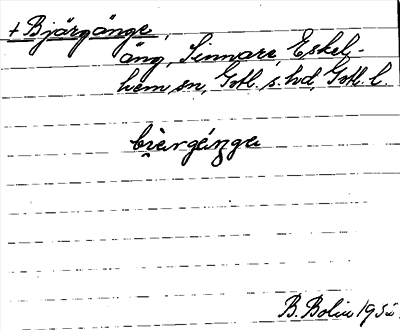 + Bjärgänge,
äng, Sinnare, Eskel-
hem sn, Gotl. s. hd, Gotl. l.
bi̯ergéŋga
B. Bolin 195